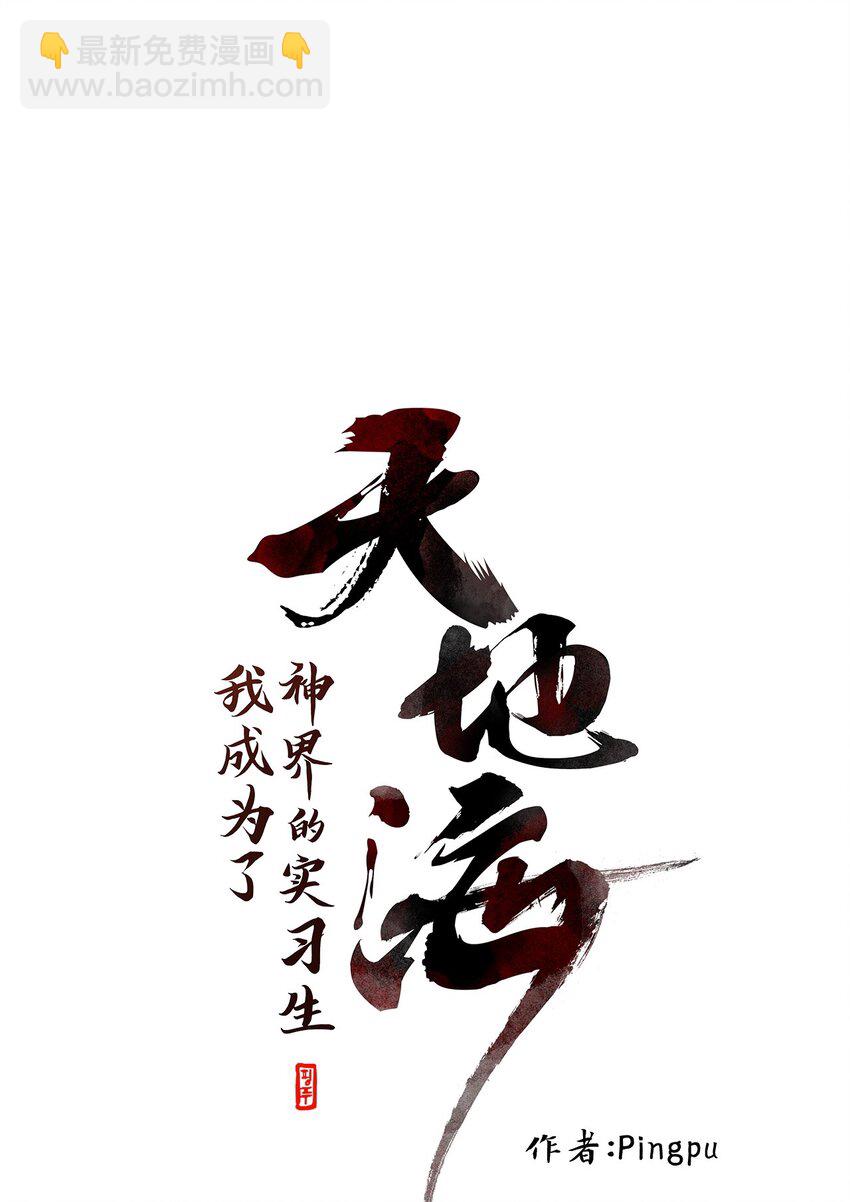 👇最新免费漫画👇
www.baozimh.com
天地海
神界的实习生
我成为了
핑푸
作者:Pingpu